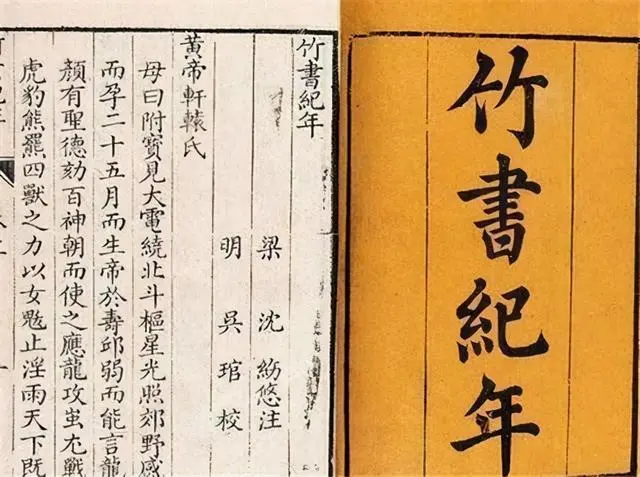 竹書紀年
竹書紀年
梁 沈 紛悠注
明 吳 琯 校
黄帝軒轅氏
母曰附寶見大電繞北斗樞星光照郊野感
而孕二十五月而生帝於壽邱弱而能言龍
顏有聖德劾百神朝而使之應龍攻蚩尤戰
虎豹熊羆四獸之力以女魃止淫雨天下既